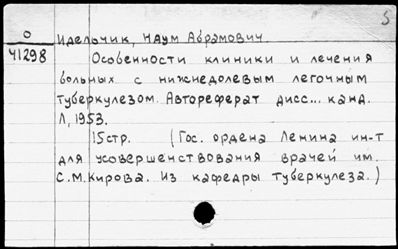 5
О
41298
Идельчик, Наум Абрамович.
Особенности клиники и лечения
больных с нижнедолевым легочным
туберкулезом. Автореферат дисс... канд.
Л, 1953.
15стр. (Гос. ордена Ленина ин-т
для усовершенствования врачей им.
С.М.Кирова. Из кафедры туберкулеза.)